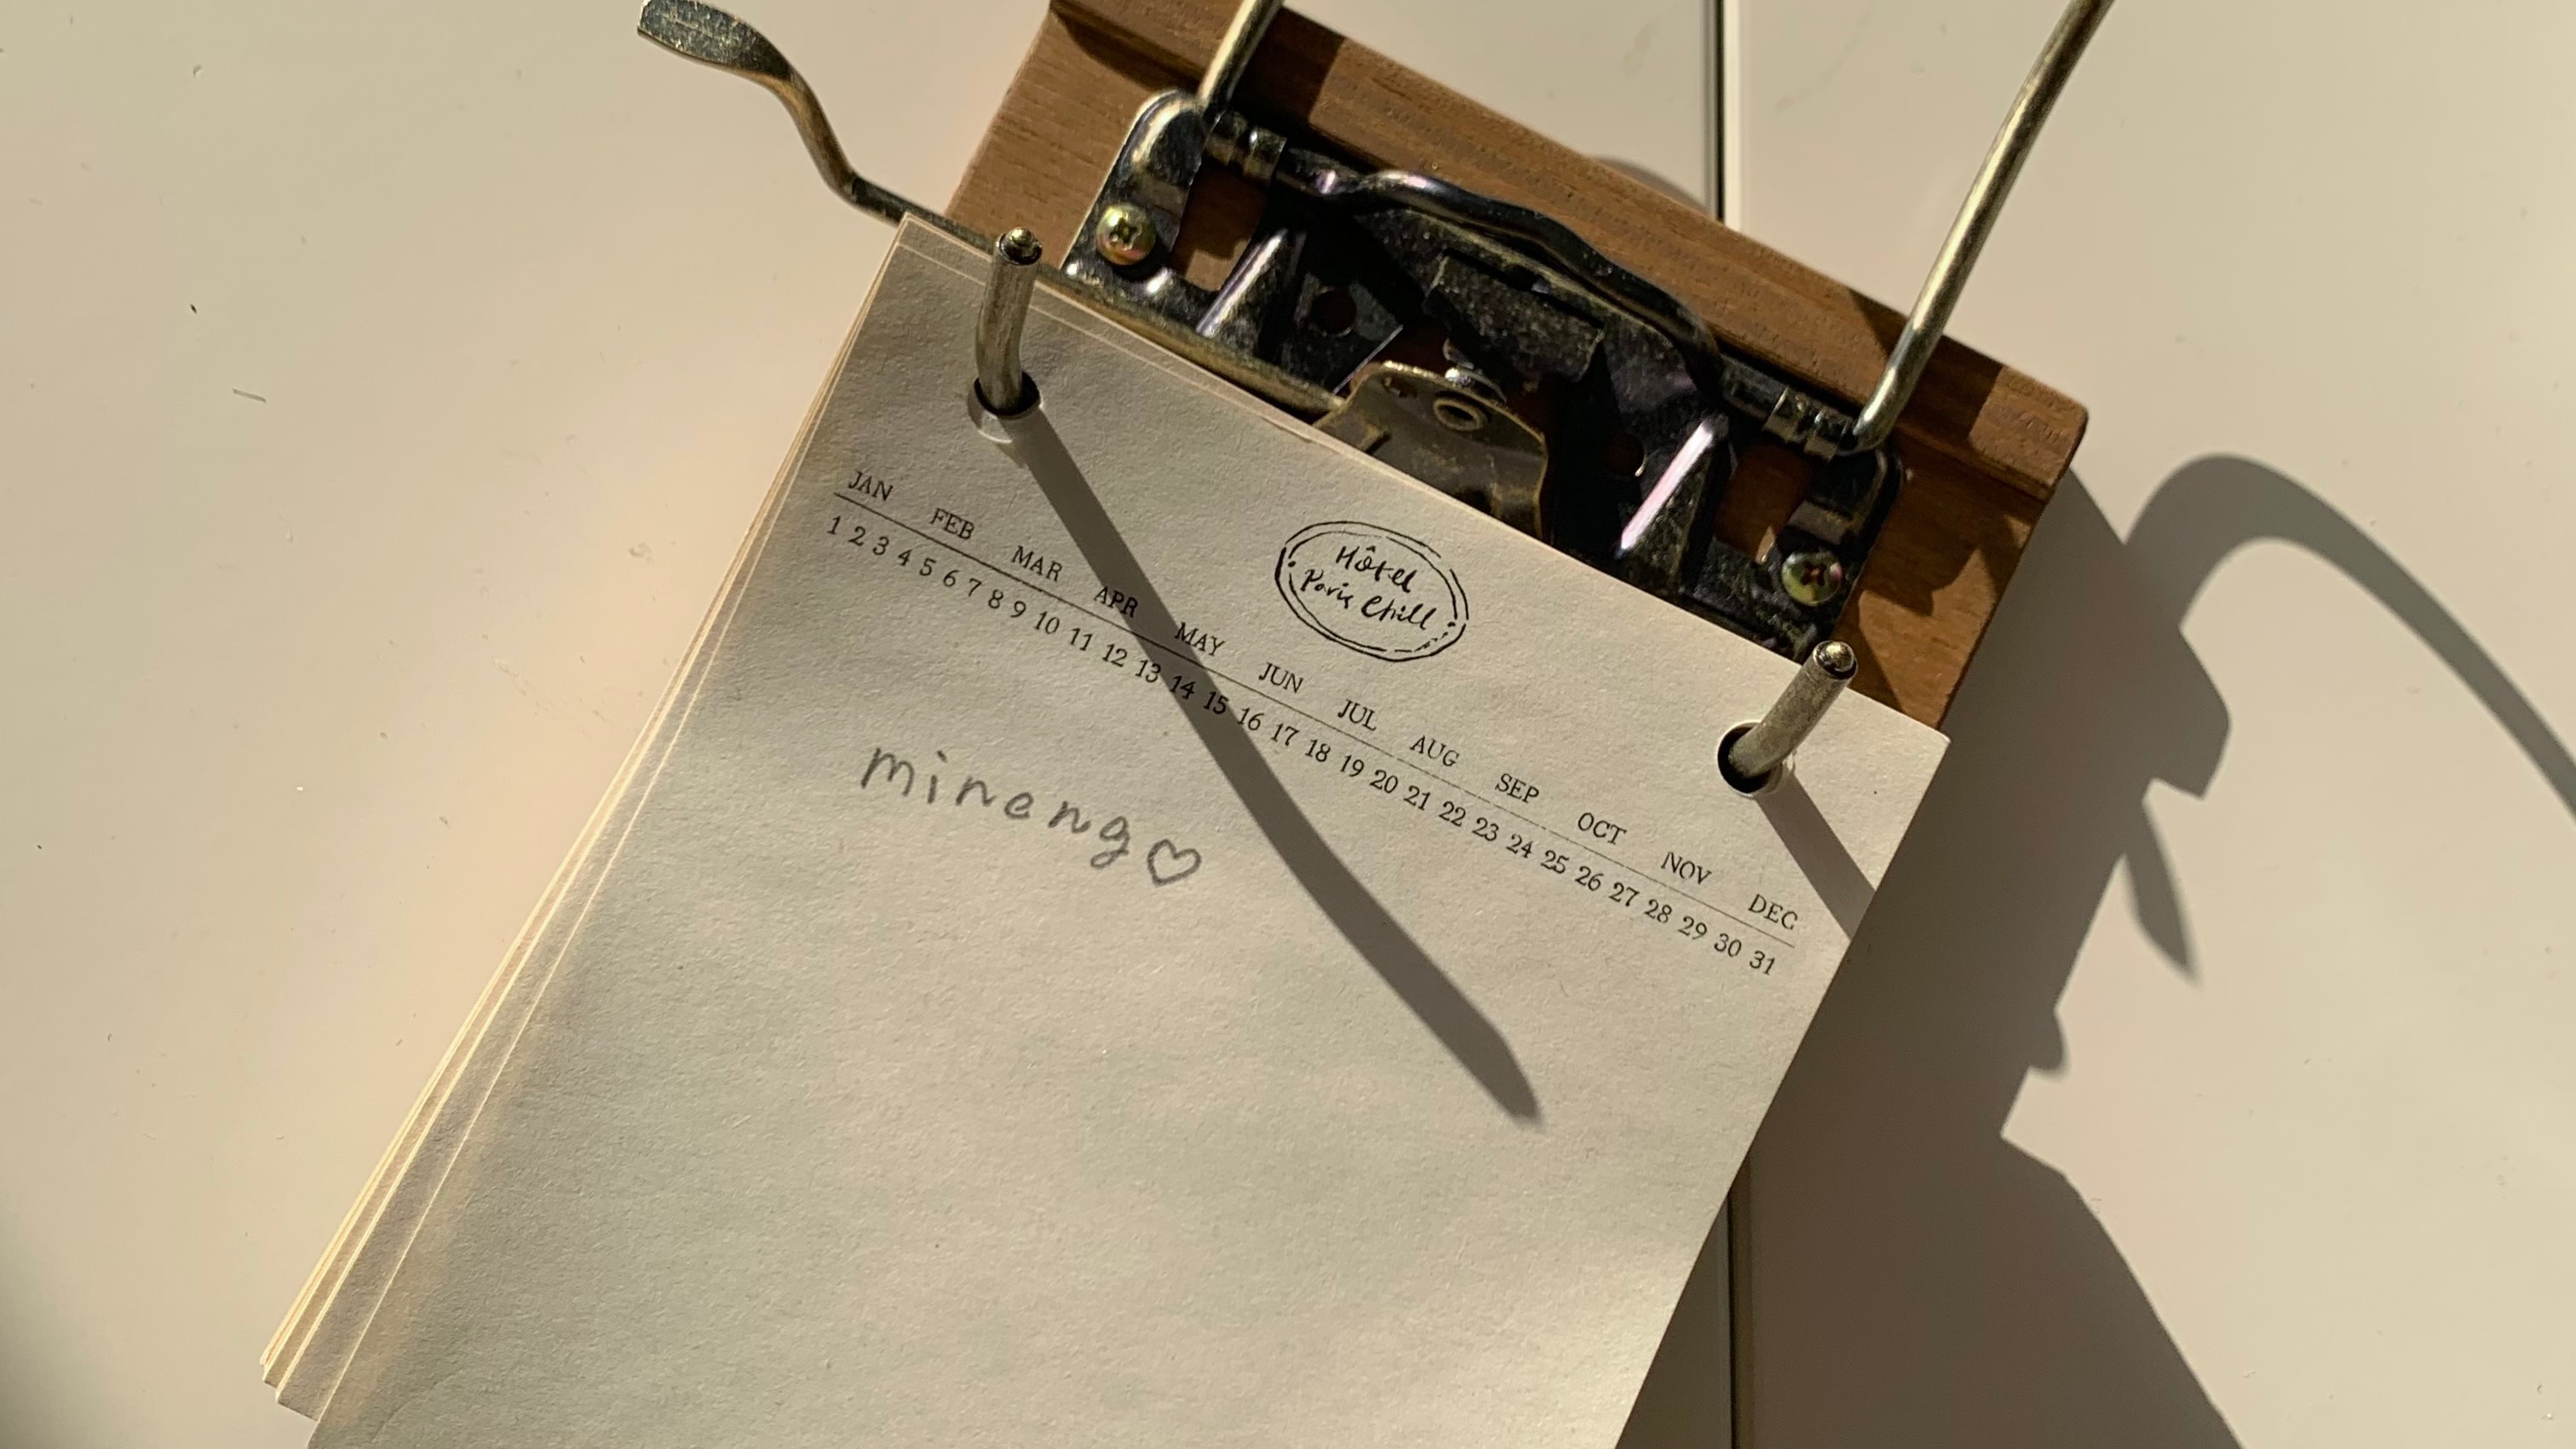 Hôtel
Paris Chill
JAN FEB MAR APR MAY JUN JUL AUG SEP OCT NOV DEC
1 2 3 4 5 6 7 8 9 10 11 12 13 14 15 16 17 18 19 20 21 22 23 24 25 26 27 28 29 30 31
mineng♡